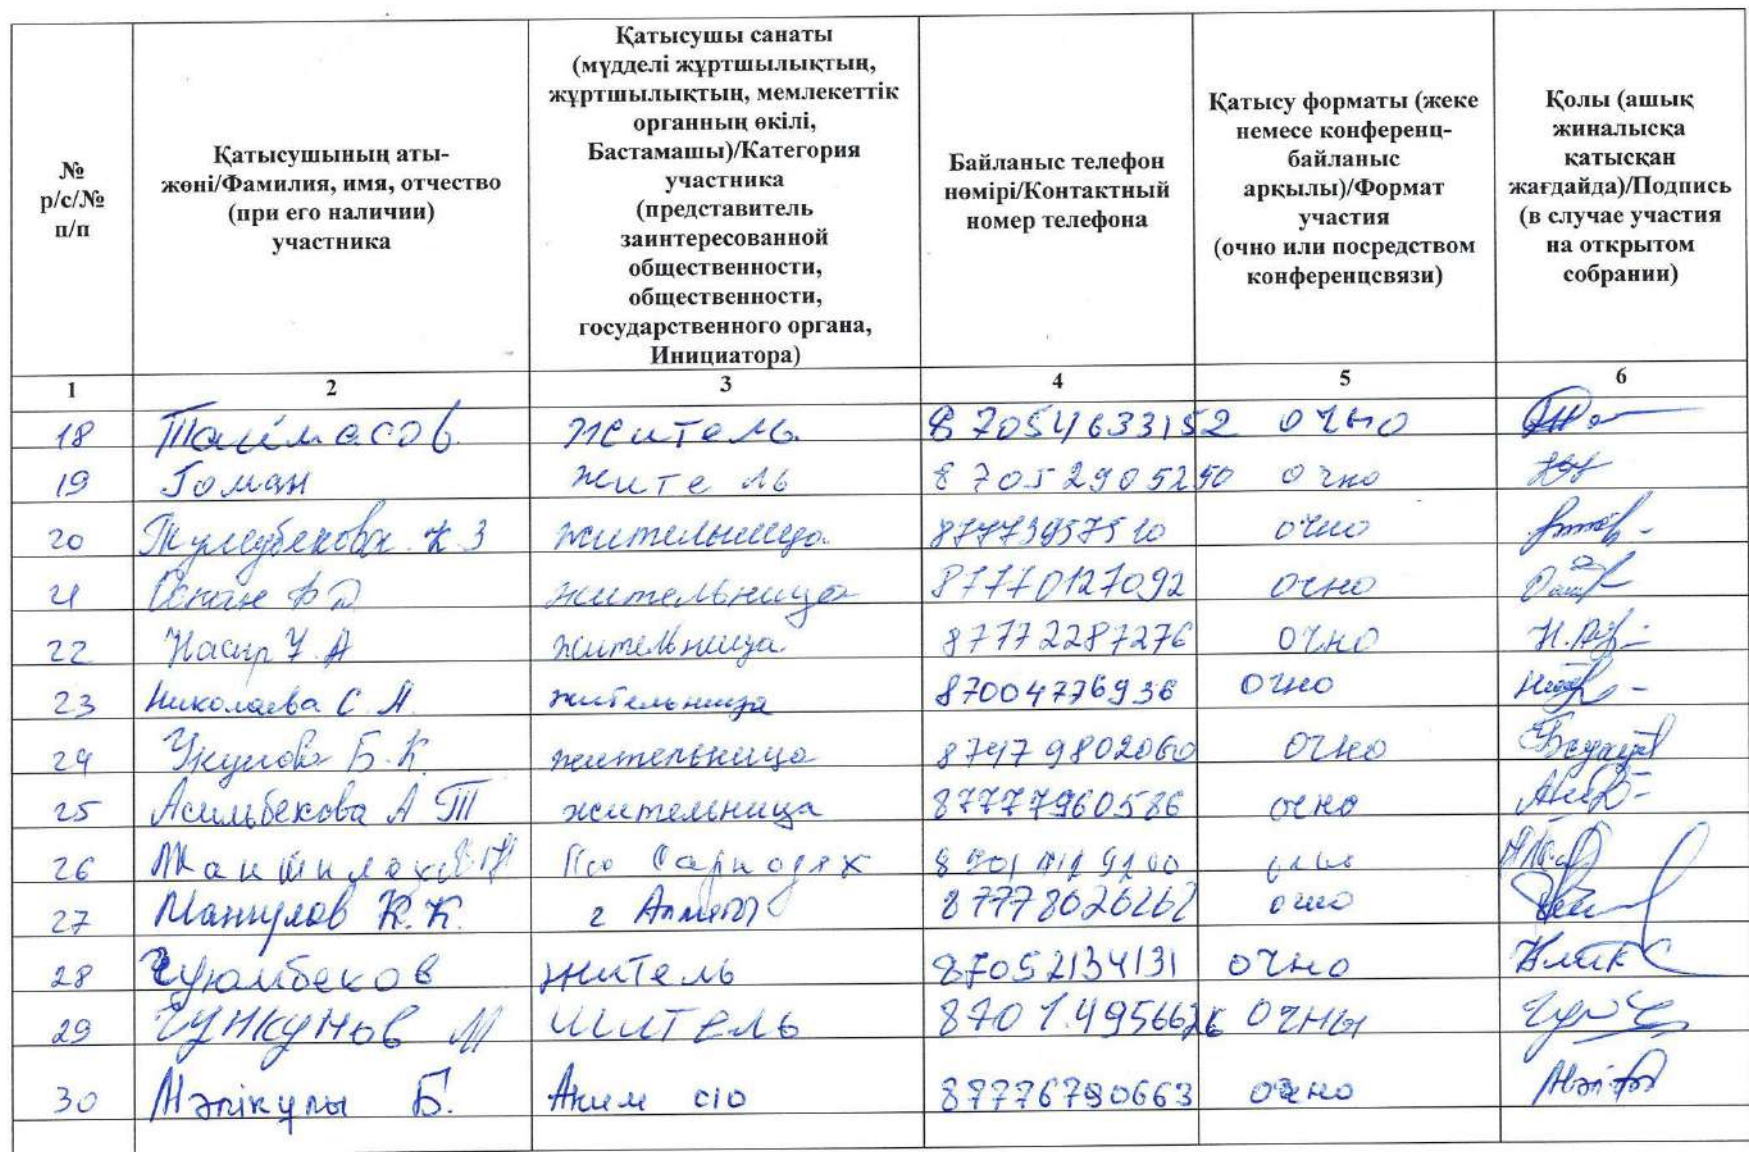 №
р/с/№
п/п
Қатысушының аты-
жөні/Фамилия, имя, отчество
(при его наличии)
участника
Қатысушы санаты
(мүдделі жұртшылықтың,
жұртшылықтың, мемлекеттік
органның өкілі,
Бастамашы)/Категория
участника
(представитель
заинтересованной
общественности,
общественности,
государственного органа,
Инициатора)
Байланыс телефон
нөмірі/Контактный
номер телефона
Қатысу форматы (жеке
немесе конференц-
байланыс
арқылы)/Формат
участия
(очно или посредством
конференцсвязи)
Қолы (ашық
жиналысқа
қатысқан
жағдайда)/Подпись
(в случае участия
на открытом
собрании)
1 2 3 4 5 6
18 Таймасов житель 87054633152 очно
19 Гоман житель 87052905290 очно
20 К.З жительница 87773957510 очно
21 Оспан Ф Д жительница 87770127092 очно
22 Насир У. А жительница 87772287276 очно Н.
23 Николаева С. А. жительница 87004776936 очно
24 Б. К. жительница 87479802060 очно
25 Асильбекова А Т жительница 87777960586 очно
26
27 Манкулов К. К. г Алматы 87778026262 очно
28 житель 87052134131 очно
29 Чункунов М житель 8701.4956626 очны
30 Мәлікұлы Б. Аким с/о 87776790663 очно